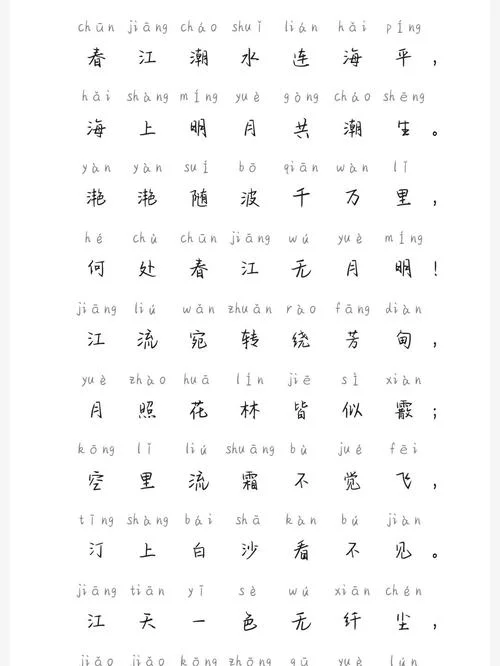 chūn jiāng cháo shuǐ lián hǎi píng
春江潮水连海平，
hǎi shàng míng yuè gòng cháo shēng
海上明月共潮生。
yàn yàn suí bō qiān wàn lǐ
滟滟随波千万里，
hé chù chūn jiāng wú yuè míng
何处春江无月明！
jiāng liú wǎn zhuǎn rào fāng diàn
江流宛转绕芳甸，
yuè zhào huā lín jiē sì xiàn
月照花林皆似霰；
kōng lǐ liú shuāng bù jué fēi
空里流霜不觉飞，
tīng shàng bái shā kàn bú jiàn
汀上白沙看不见。
jiāng tiān yī sè wú xiān chén
江天一色无纤尘，
jiǎo jiǎo kōng zhōng gū yuè lún